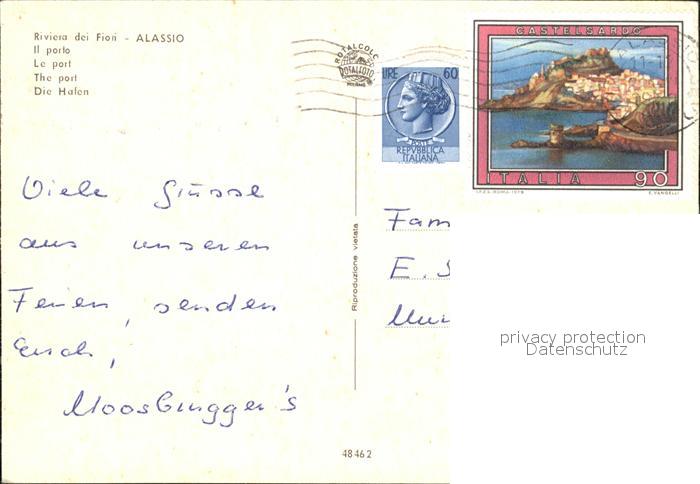 Riviera dei Fiori - ALASSIO
Il porto
Le port
The port
Die Hafen
ROTALCOLOR
ROTALFOTO
MILANO
LIRE 60
POSTE
REPVBBLICA
ITALIANA
CASTELSARDO
ITALIA 90
I.P.Z.S. ROMA 1978
E. VANGELLI
Viele Grüsse
aus unseren
Ferien, senden
Euch,
Moosbrugger's
Riproduzione vietata
Fam
E. S
48462
privacy protection
Datenschutz